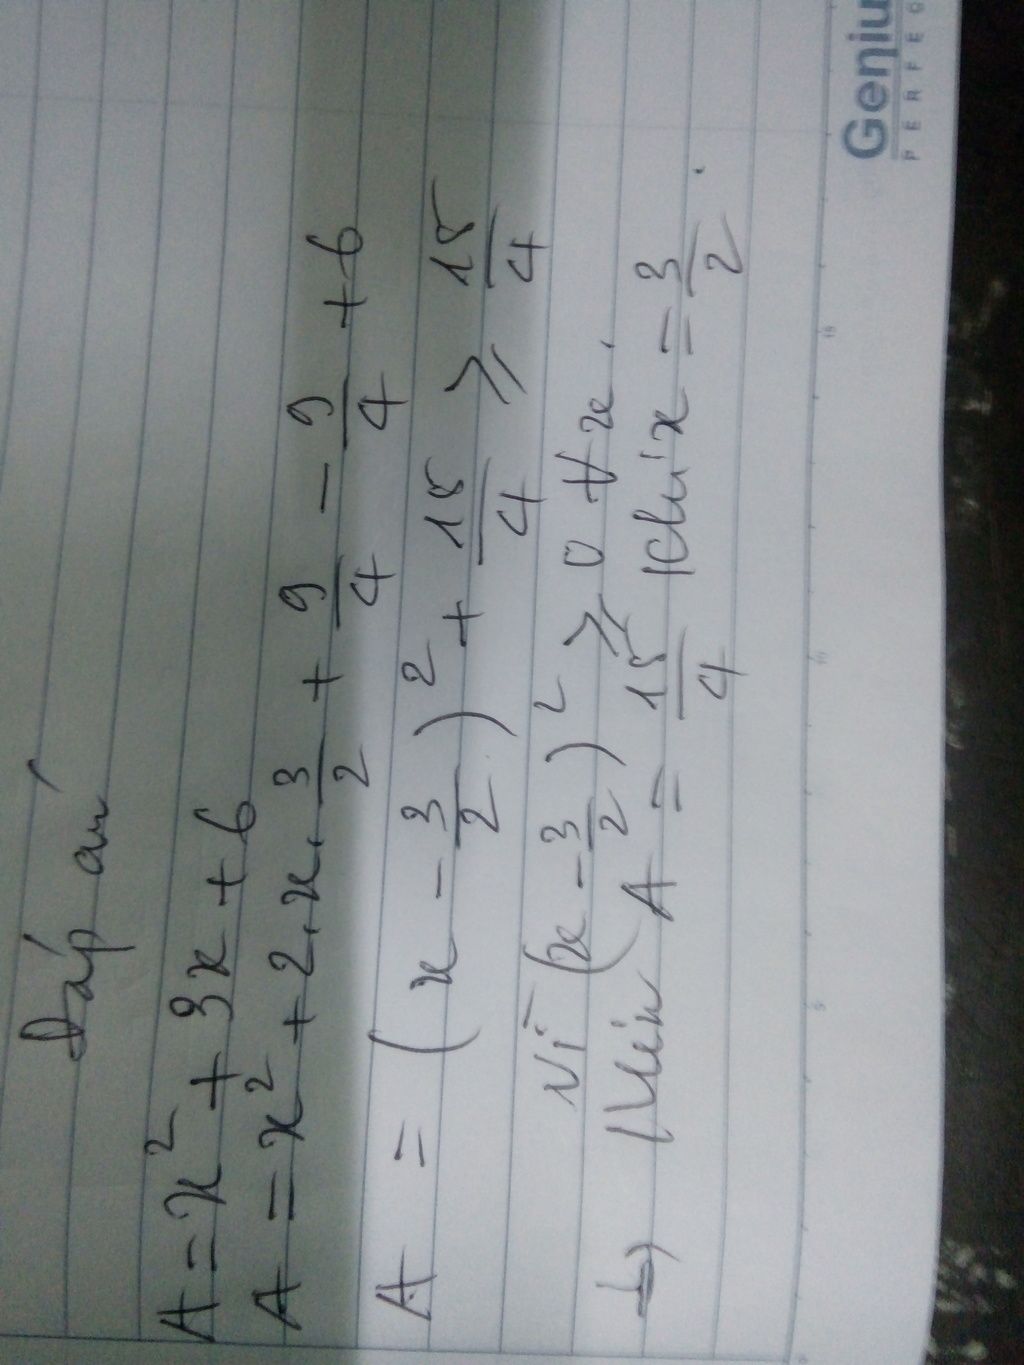 Đáp án
A = x² + 3x + 6
A = x² + 2.x.3/2 + 9/4 - 9/4 + 6
A = (x - 3/2)² + 15/4 ⩾ 15/4
Vì (x - 3/2)² ⩾ 0 ∀x.
Min A = 15/4 khi x = 3/2.
Geniu
PERFEC